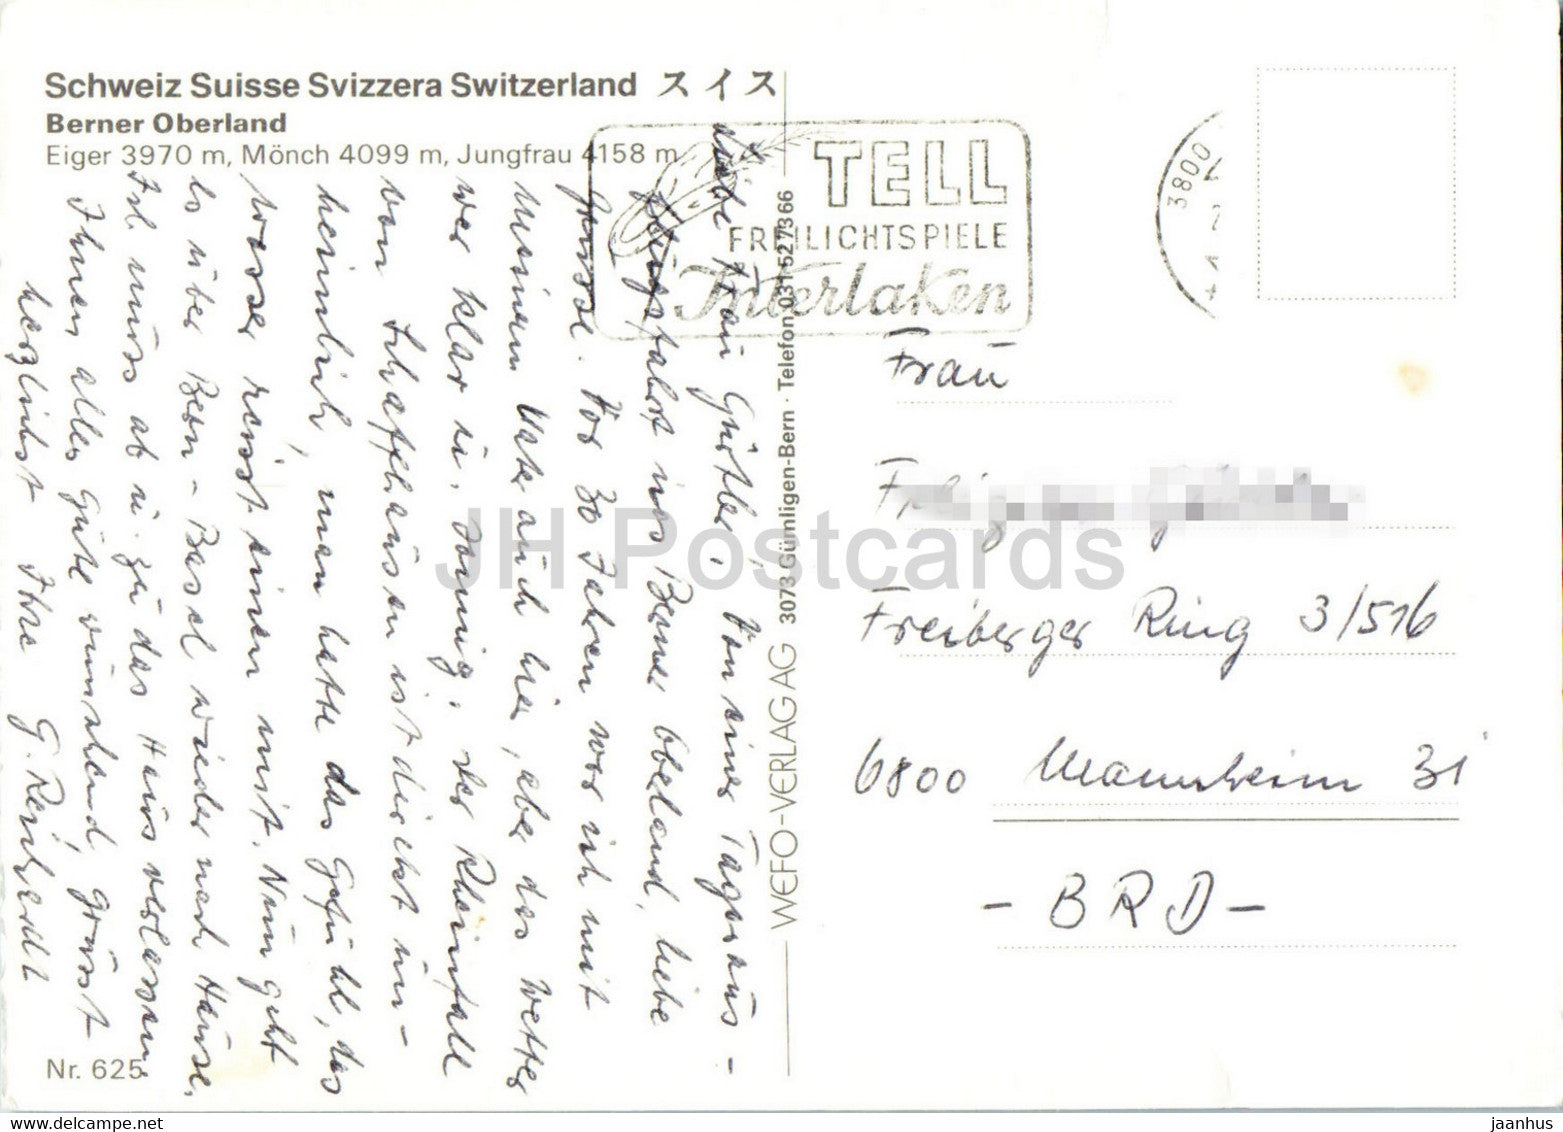 Schweiz Suisse Svizzera Switzerland スイス
Berner Oberland
Eiger 3970 m, Mönch 4099 m, Jungfrau 4158 m
TELL
FREILICHTSPIELE
Interlaken
3800
Liebe Frau Gürtler, Von einer Tagesaus-
flugsfahrt ins Berner Oberland, liebe
Grüsse. Vor 30 Jahren war ich mit
meinem Vater auch hier, aber das Wetter
war klar u. sonnig. Der Rheinfall
von Schaffhausen ist direkt un-
heimlich, man hatte das Gefühl, das
Wasser reisst einen mit. Nun geht
es über Bern - Basel wieder nach Hause.
Ich muss ab u. zu das Haus verlassen
Ihnen alles Gute wünschend, grüsst
herzlichst Ihre G. Reinhardt
Frau
Freiberger Ring 3/516
6800 Mannheim 31
- BRD -
WEFO-VERLAG AG 3073 Gümligen-Bern · Telefon 031 52 73 66
Nr. 625
JH Postcards
www.delcampe.net
jaanhus